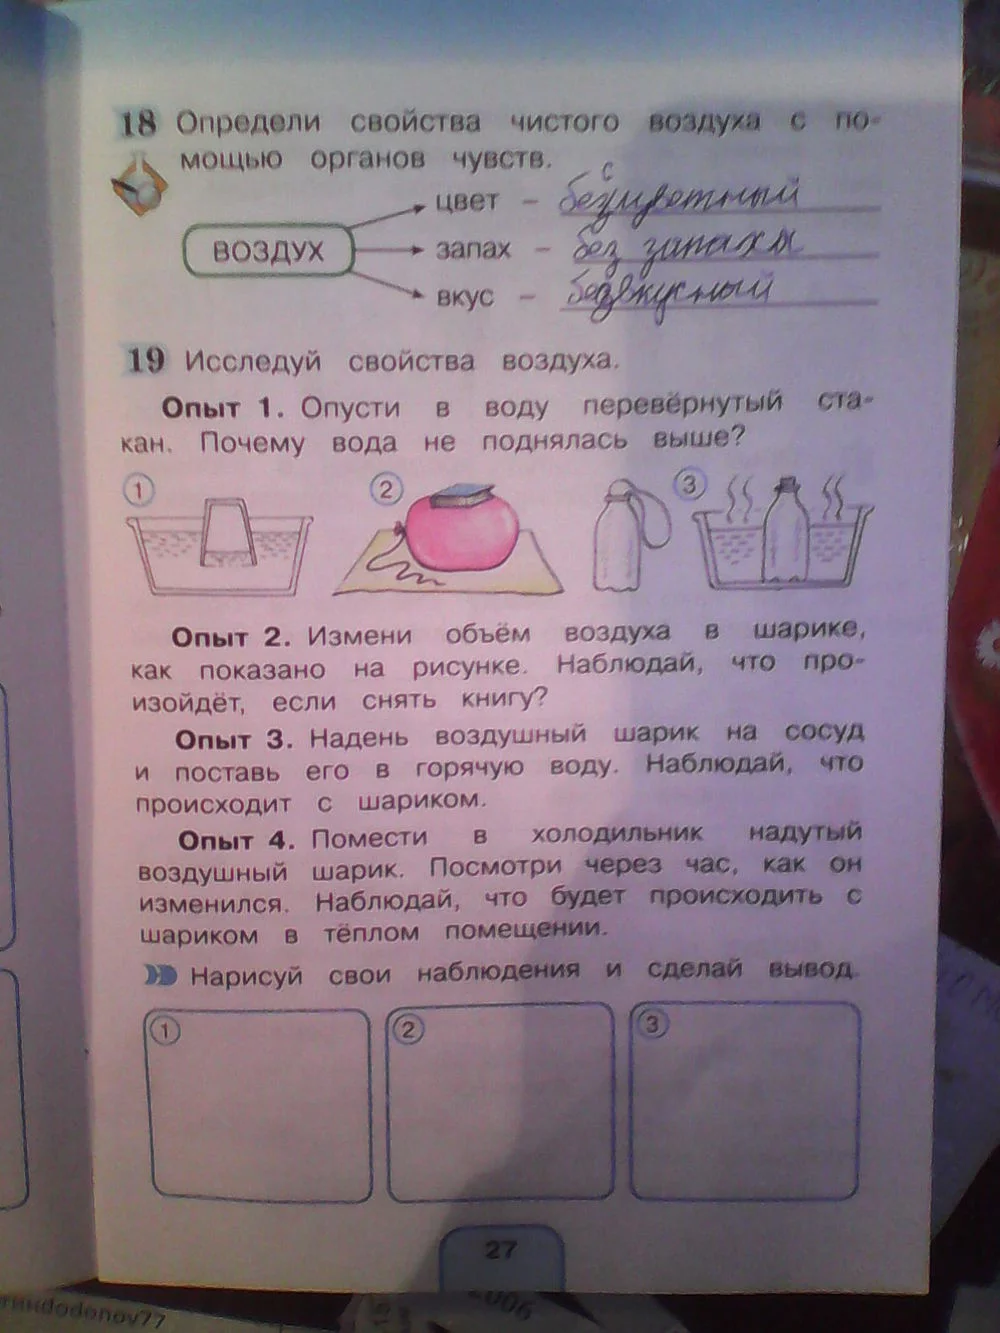 18 Определи свойства чистого воздуха с по-
мощью органов чувств.
цвет – бесцветный
ВОЗДУХ запах – без запаха
вкус – безвкусный
19 Исследуй свойства воздуха.
Опыт 1. Опусти в воду перевёрнутый ста-
кан. Почему вода не поднялась выше?
1 2 3
Опыт 2. Измени объём воздуха в шарике,
как показано на рисунке. Наблюдай, что про-
изойдёт, если снять книгу?
Опыт 3. Надень воздушный шарик на сосуд
и поставь его в горячую воду. Наблюдай, что
происходит с шариком.
Опыт 4. Помести в холодильник надутый
воздушный шарик. Посмотри через час, как он
изменился. Наблюдай, что будет происходить с
шариком в тёплом помещении.
Нарисуй свои наблюдения и сделай вывод.
1 2 3
27